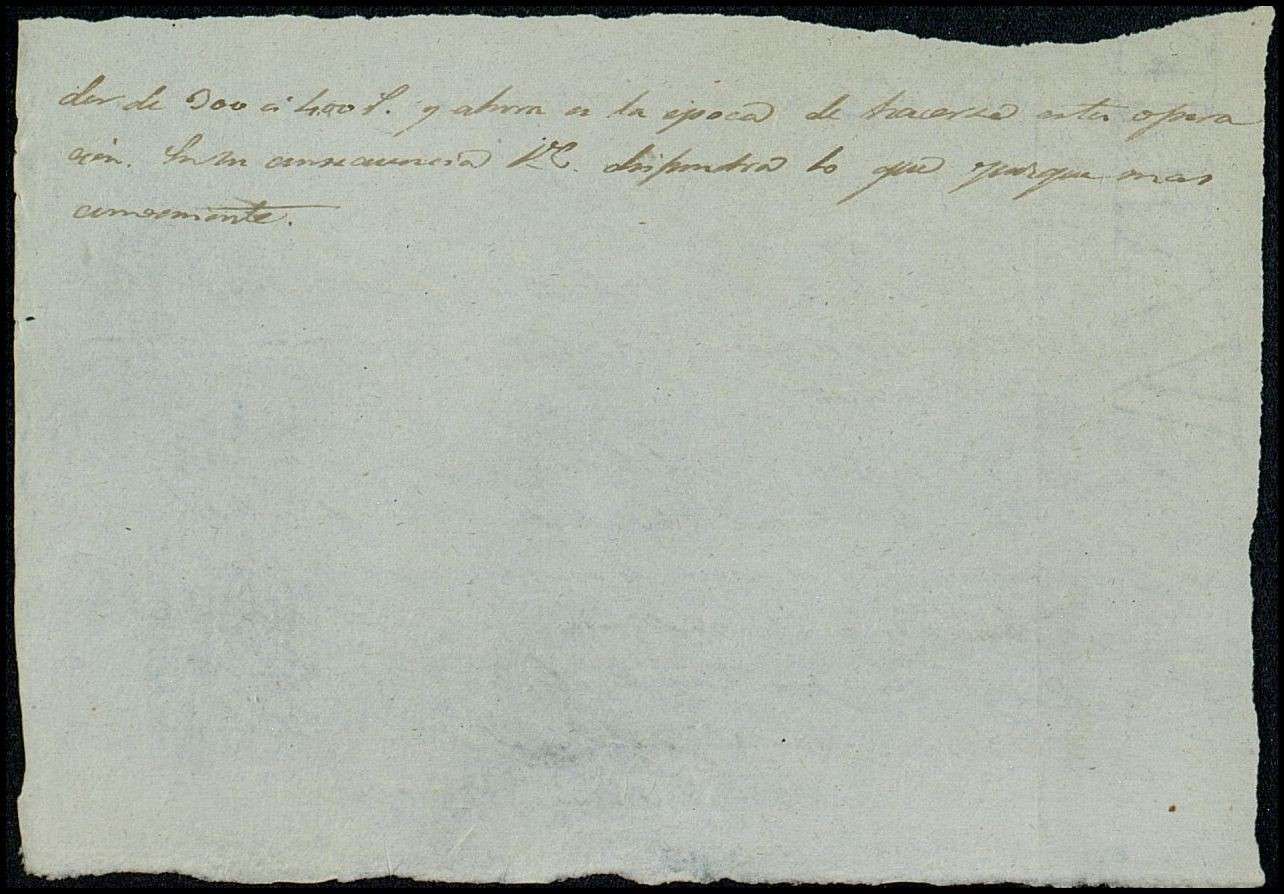 der de 300 á 400 P. y ahora es la epoca de hacerse esta opera
cion. En su consecuencia V.E. dispondra lo que jusgue mas
combeniente.